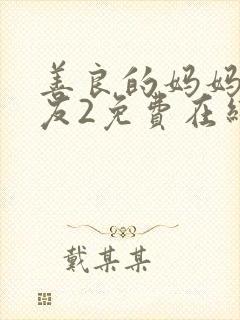 善良的妈妈
友2免費在
戴某某